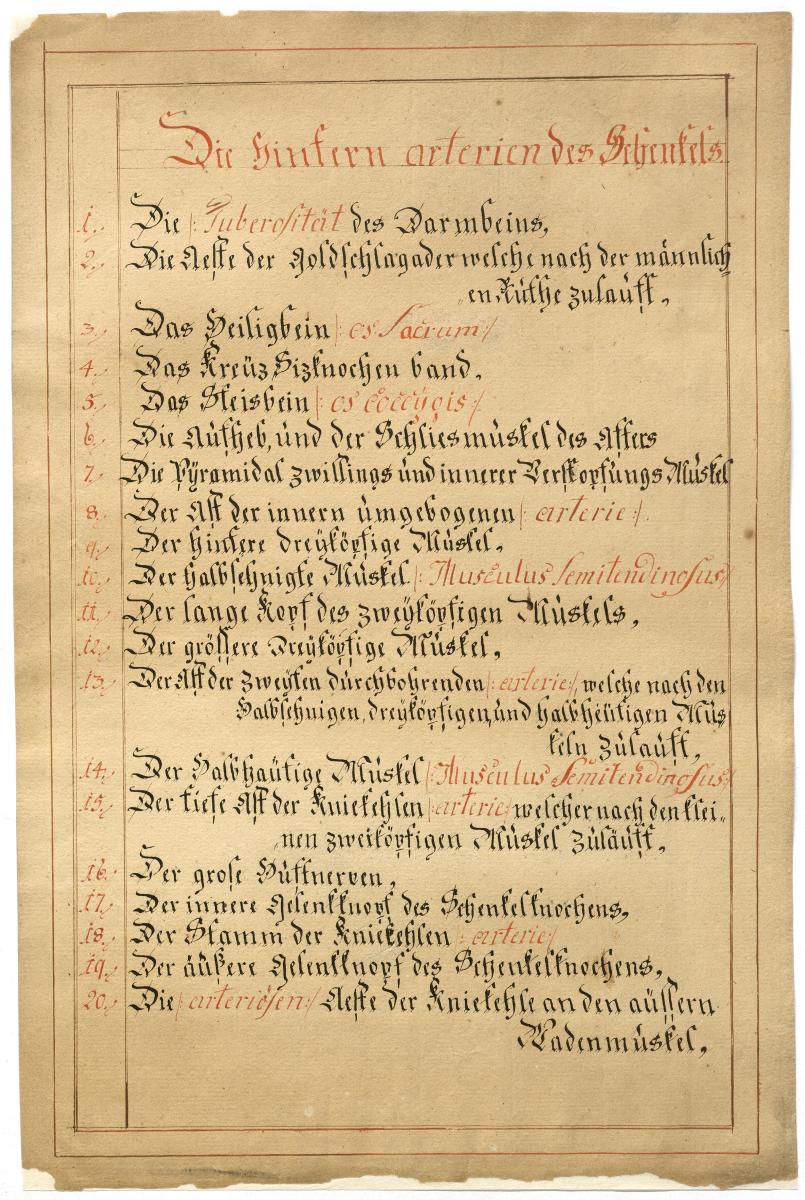 Die hintern arterien des Schenkels
1. Die /: Tuberosität des Darmbeins,
2. Die Aeste der Goldschlagader welche nach der männlich
en Rüthe zulaüft,
3. Das Heiligbein /: os Sacrum /
4. Das Kreüz Sizknochen band,
5. Das Steisbein /: os coccÿgis :/
6. Die Aüfheb, ünd der Schliesmüskel des Afters
7. Die Pÿramidal zwillings ünd innerer Verstopfüngs Müskel
8. Der Ast der innern ümgebogenen /: arterie :/.
9. Der hintere dreÿköpfige Müskel,
10. Der halbsehnigte Müskel /: Musculus Semitendinosus /
11. Der lange Kopf des zweÿköpfigen Müskels,
12. Der grössere Dreÿköpfige Müskel,
13. Der Ast der zweÿten dürchbohrenden /: arterie :/, welche nach den
Halbsehnigen, dreÿköpfigen, ünd halbheütigen Müs
keln zülaüft,
14. Der Halbhaütige Müskel /: Musculus Semitendinosus /
15. Der tiefe Ast der Kniekehlen /: arterie / welcher nach den klei,,
,,nen zweiköpfigen Müskel züläüft,
16. Der grose Hüftnerven,
17. Der innere Gelenkknopf des Schenkelknochens,
18. Der Stamm der Kniekehlen /: arterie /
19. Der äüßere Gelenkknopf des Schenkelknochens,
20. Die /: arteriösen :/ Aeste der Kniekehle an den aüssern
Wadenmüskel,